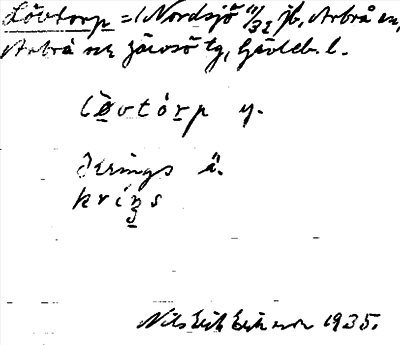 Lövtorp =/Nordsjö 11/32 jb, Arbrå sn,
Arbrå och Järvsö tg, Gävleb. l.
lövtórp y.
Krings ä.
kríŋs
Nils Erik Eriksson 1935.